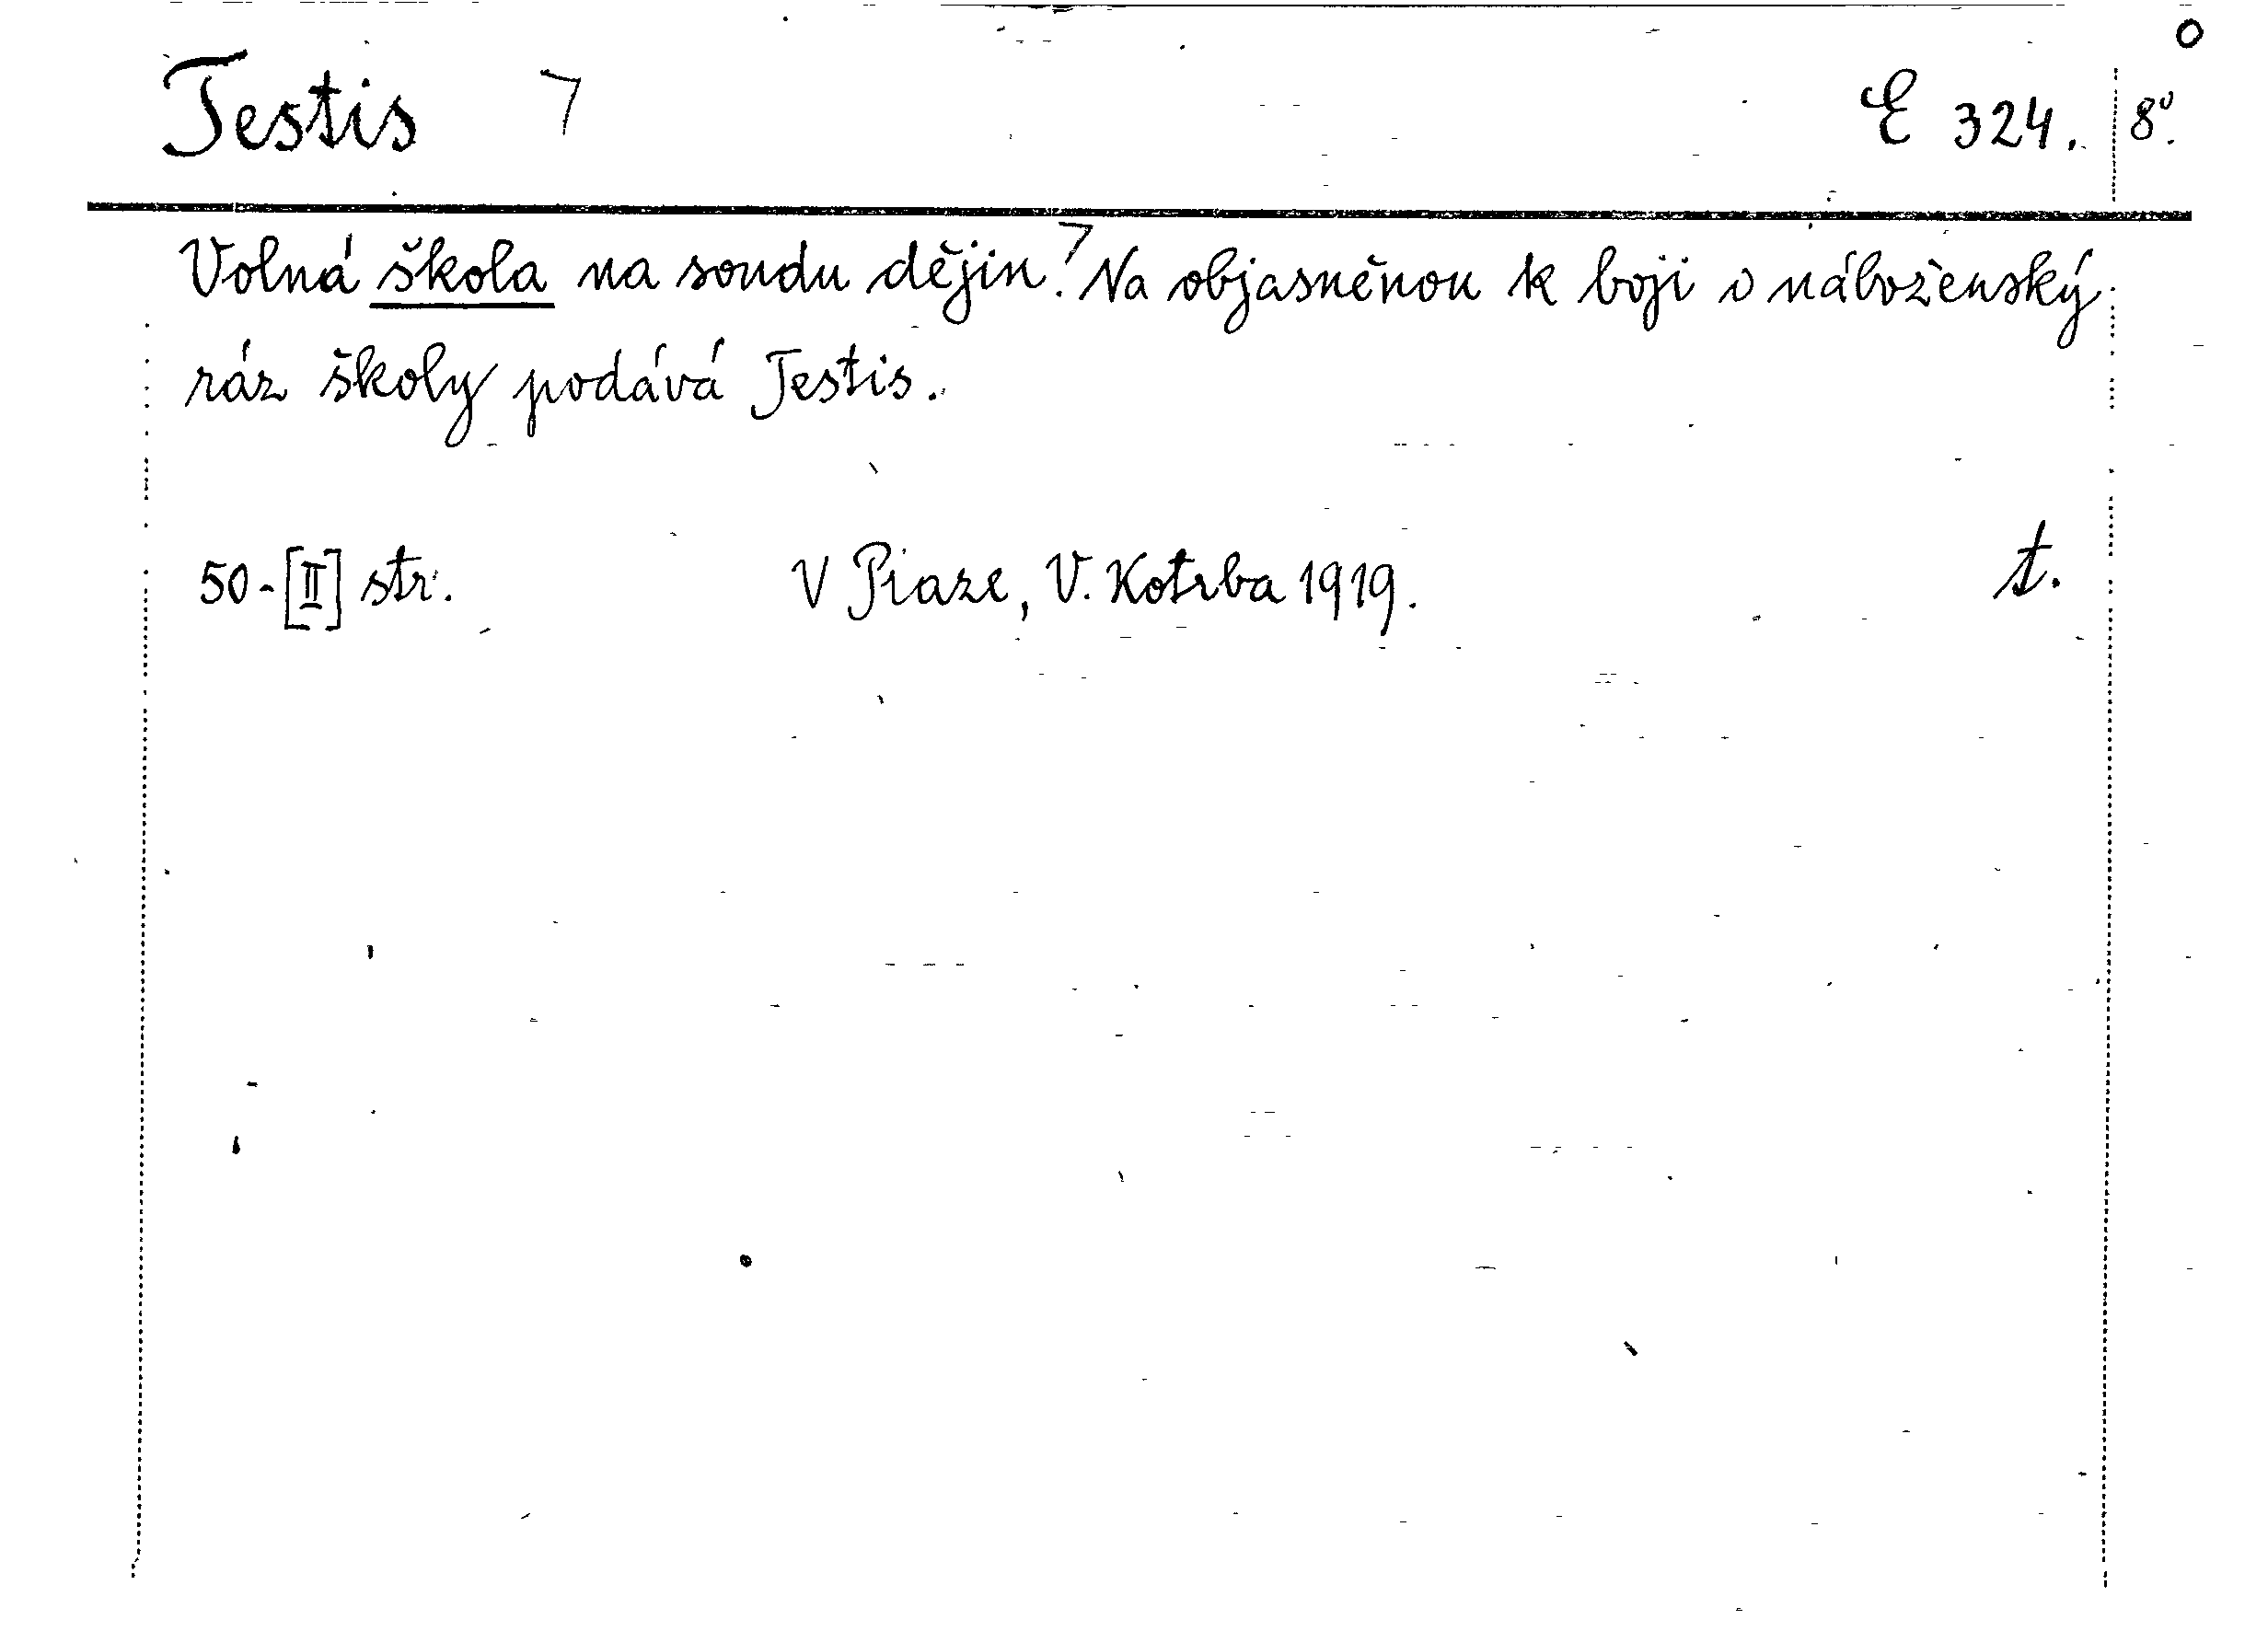 Testis 7 E 324. 8°.
Volná škola na soudu dějin.7 Na objasněnou k boji o náboženský
ráz školy podává Testis.
50-[II] str. V Praze, V. Kotrba 1919. t.